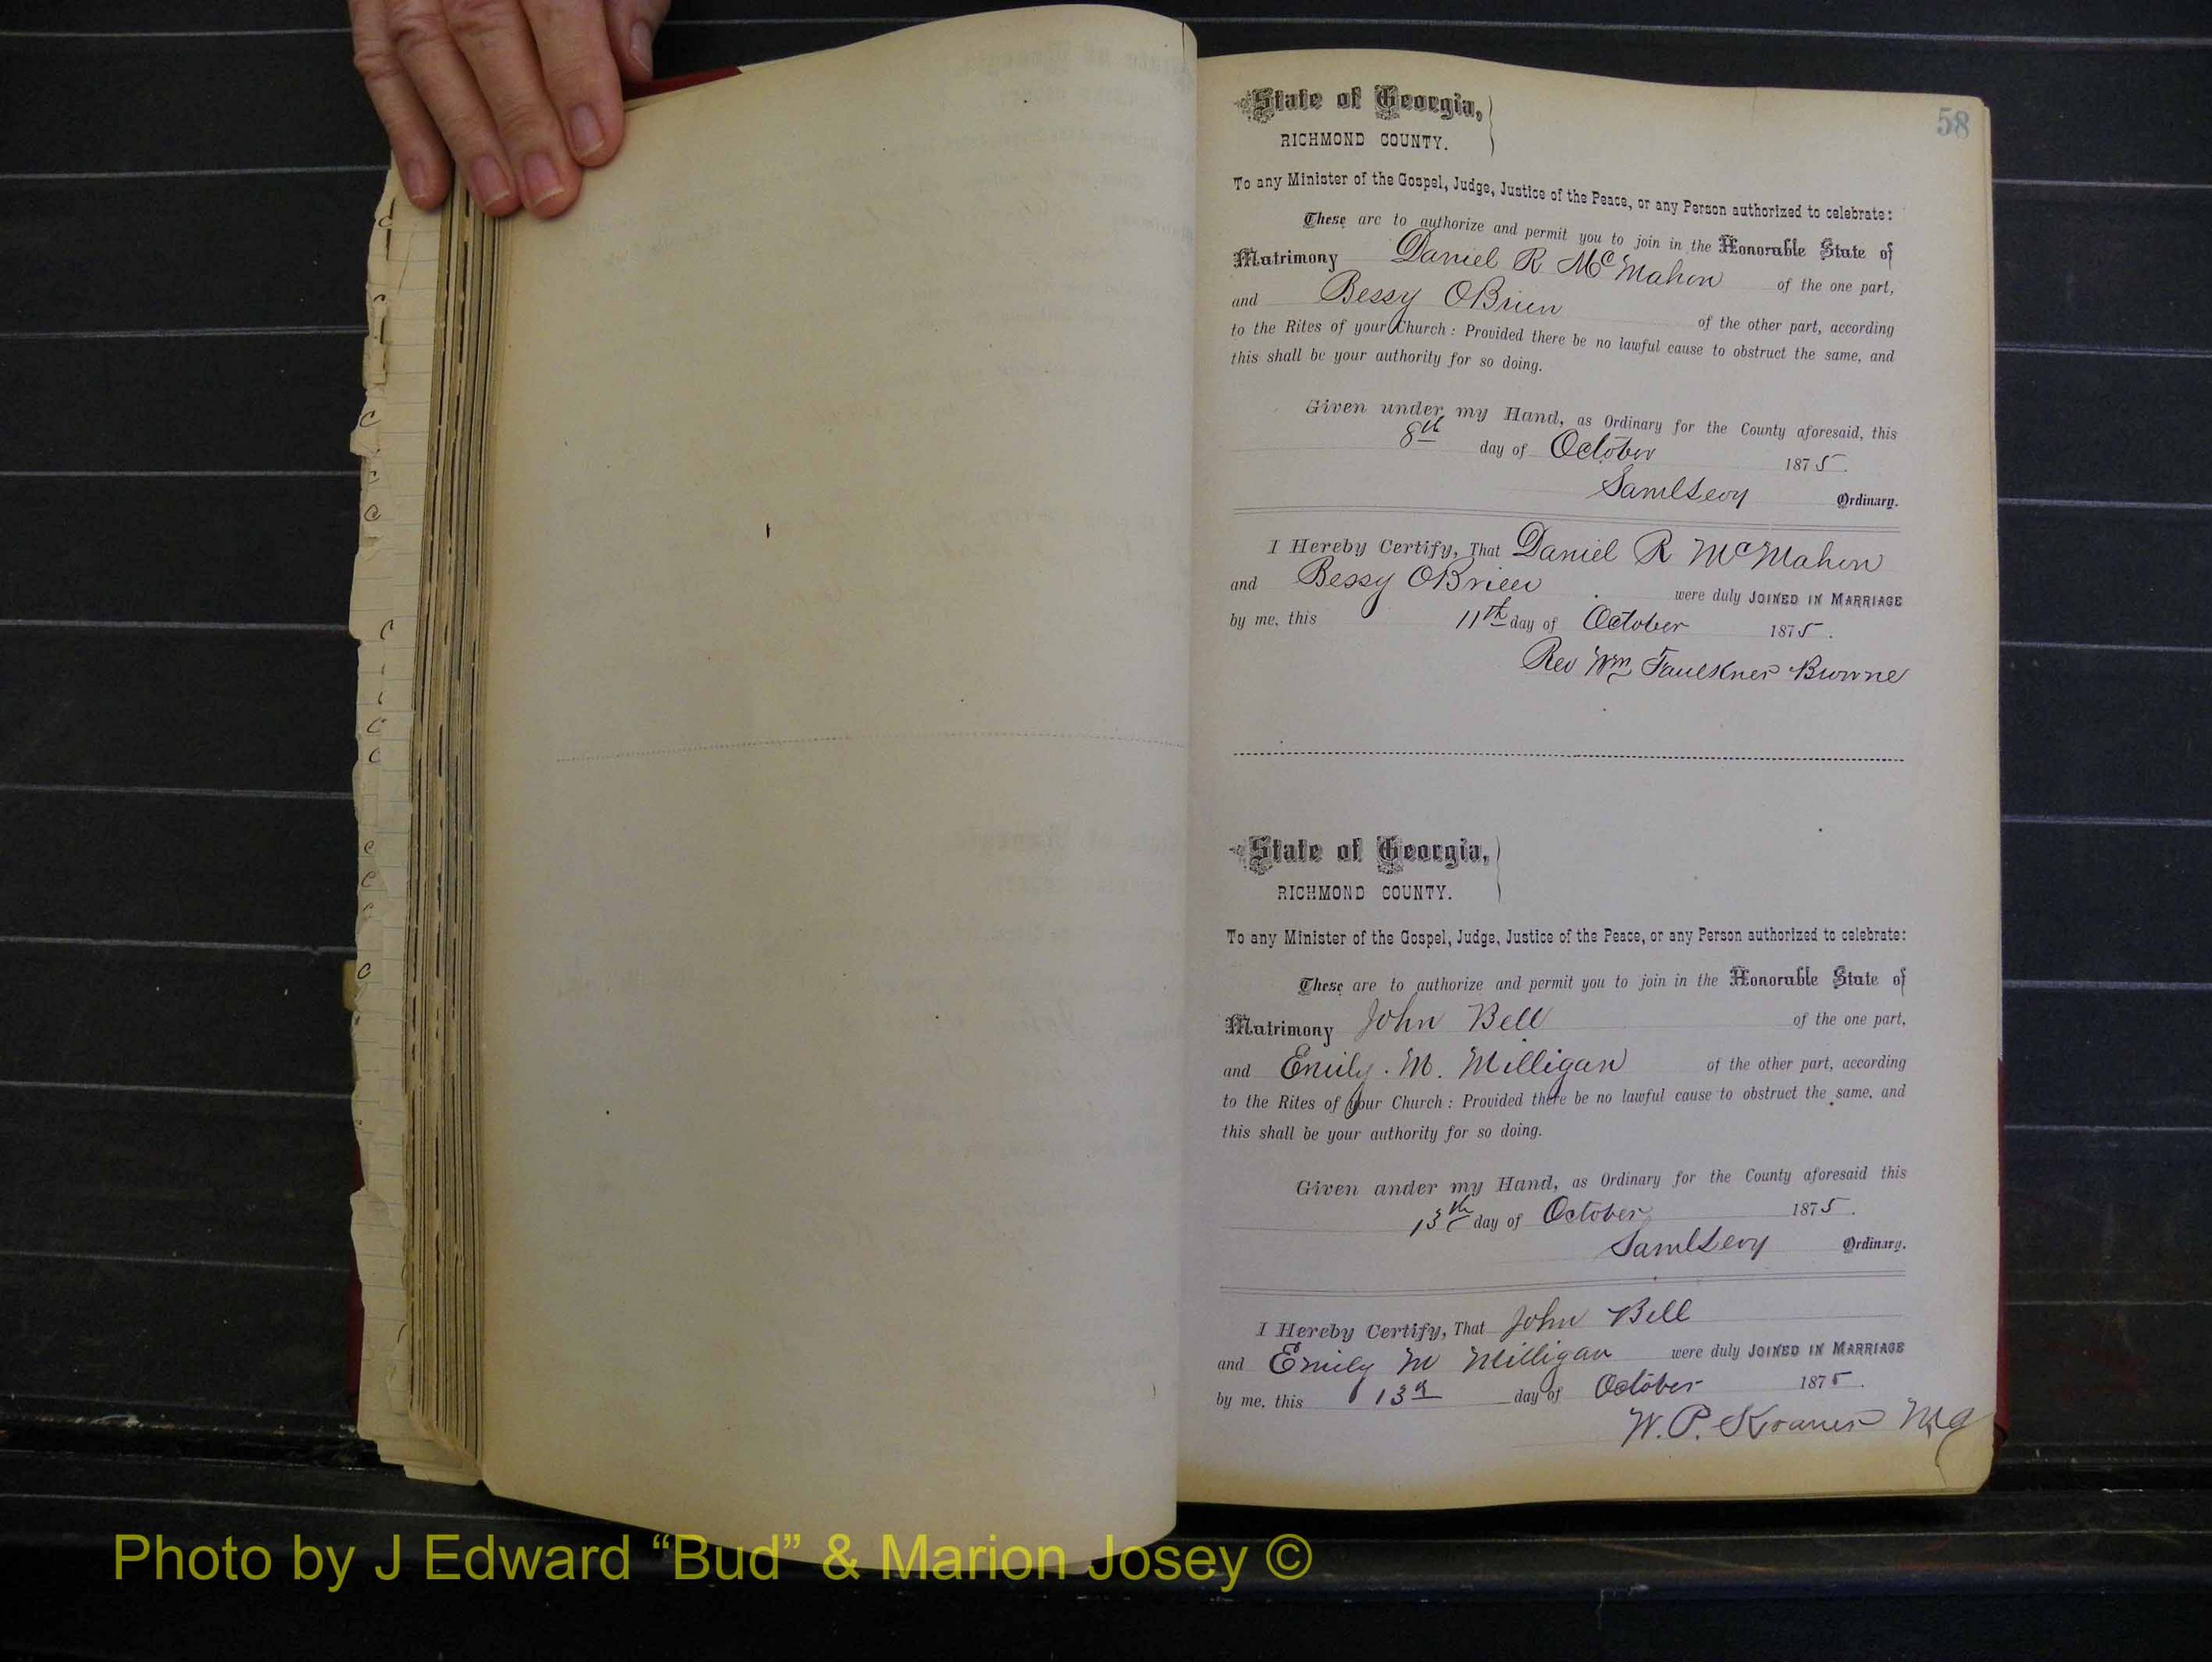 58
State of Georgia,
RICHMOND COUNTY.
To any Minister of the Gospel, Judge, Justice of the Peace, or any Person authorized to celebrate:
These are to authorize and permit you to join in the Honorable State of
Matrimony Daniel R McMahon of the one part,
and Bessy OBrien of the other part, according
to the Rites of your Church: Provided there be no lawful cause to obstruct the same, and
this shall be your authority for so doing.
Given under my Hand, as Ordinary for the County aforesaid, this
8th day of October 1875.
Saml Levy Ordinary.
I Hereby Certify, That Daniel R McMahon
and Bessy OBrien were duly JOINED IN MARRIAGE
by me, this 11th day of October 1875.
Rev Wm Faulkner Browne
State of Georgia,
RICHMOND COUNTY.
To any Minister of the Gospel, Judge, Justice of the Peace, or any Person authorized to celebrate:
These are to authorize and permit you to join in the Honorable State of
Matrimony John Bell of the one part,
and Emily. M. Milligan of the other part, according
to the Rites of your Church: Provided there be no lawful cause to obstruct the same, and
this shall be your authority for so doing.
Given under my Hand, as Ordinary for the County aforesaid this
13th day of October 1875.
Saml Levy Ordinary.
I Hereby Certify, That John Bell
and Emily M Milligan were duly JOINED IN MARRIAGE
by me, this 13th day of October 1875.
W. P.
Photo by J Edward “Bud” & Marion Josey ©